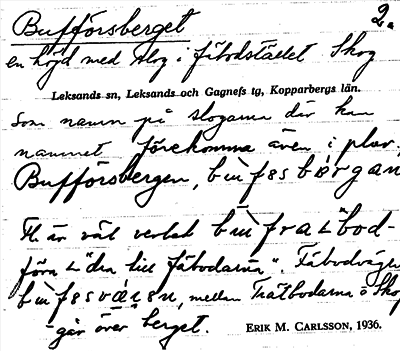 Bufförsberget 2.
en höjd med skog i fäbodstället Skog
Leksands sn, Leksands och Gagnefs tg, Kopparbergs län.
Som namn på skogarna där kan
namnet förekomma även i plur.,
Bufförsbergen, bùfəsbärgan
är väl verbat
föra till fäbodarna". Fäbodvägen
mellan Trätbodarna o Skog
går över berget. ERIK M. CARLSSON, 1936.